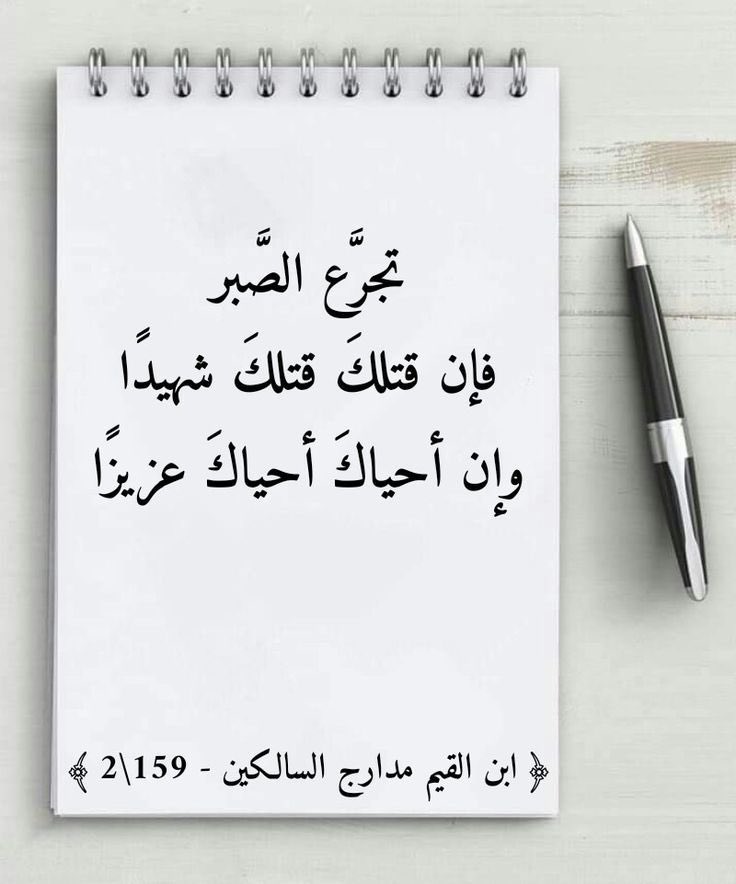 تجرَّع الصَّبر
فإن قتلكَ قتلكَ شهيدًا
وإن أحياكَ أحياكَ عزيزًا
﴿ ابن القيم مدارج السالكين - 159\2 ﴾